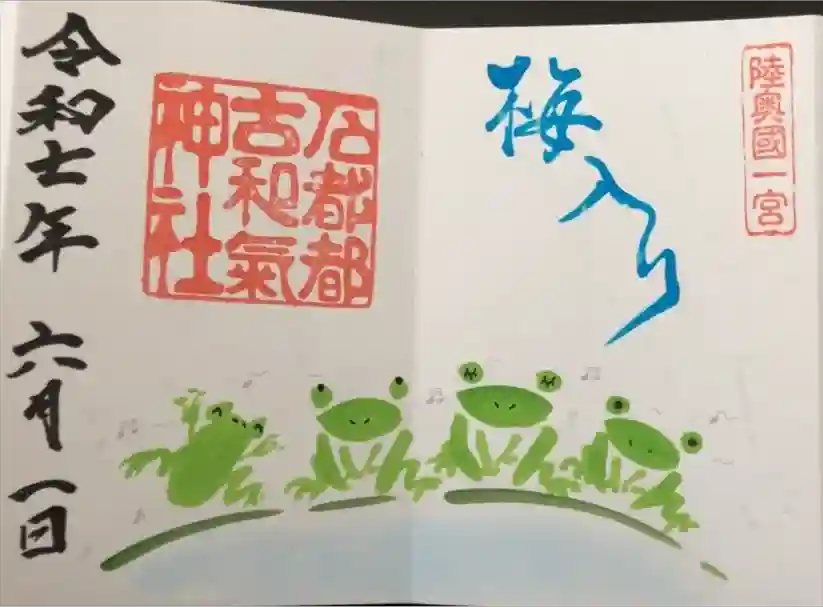 陸奥國一宮
梅入り
石都都
古和氣
神社
令和五年 六月一日